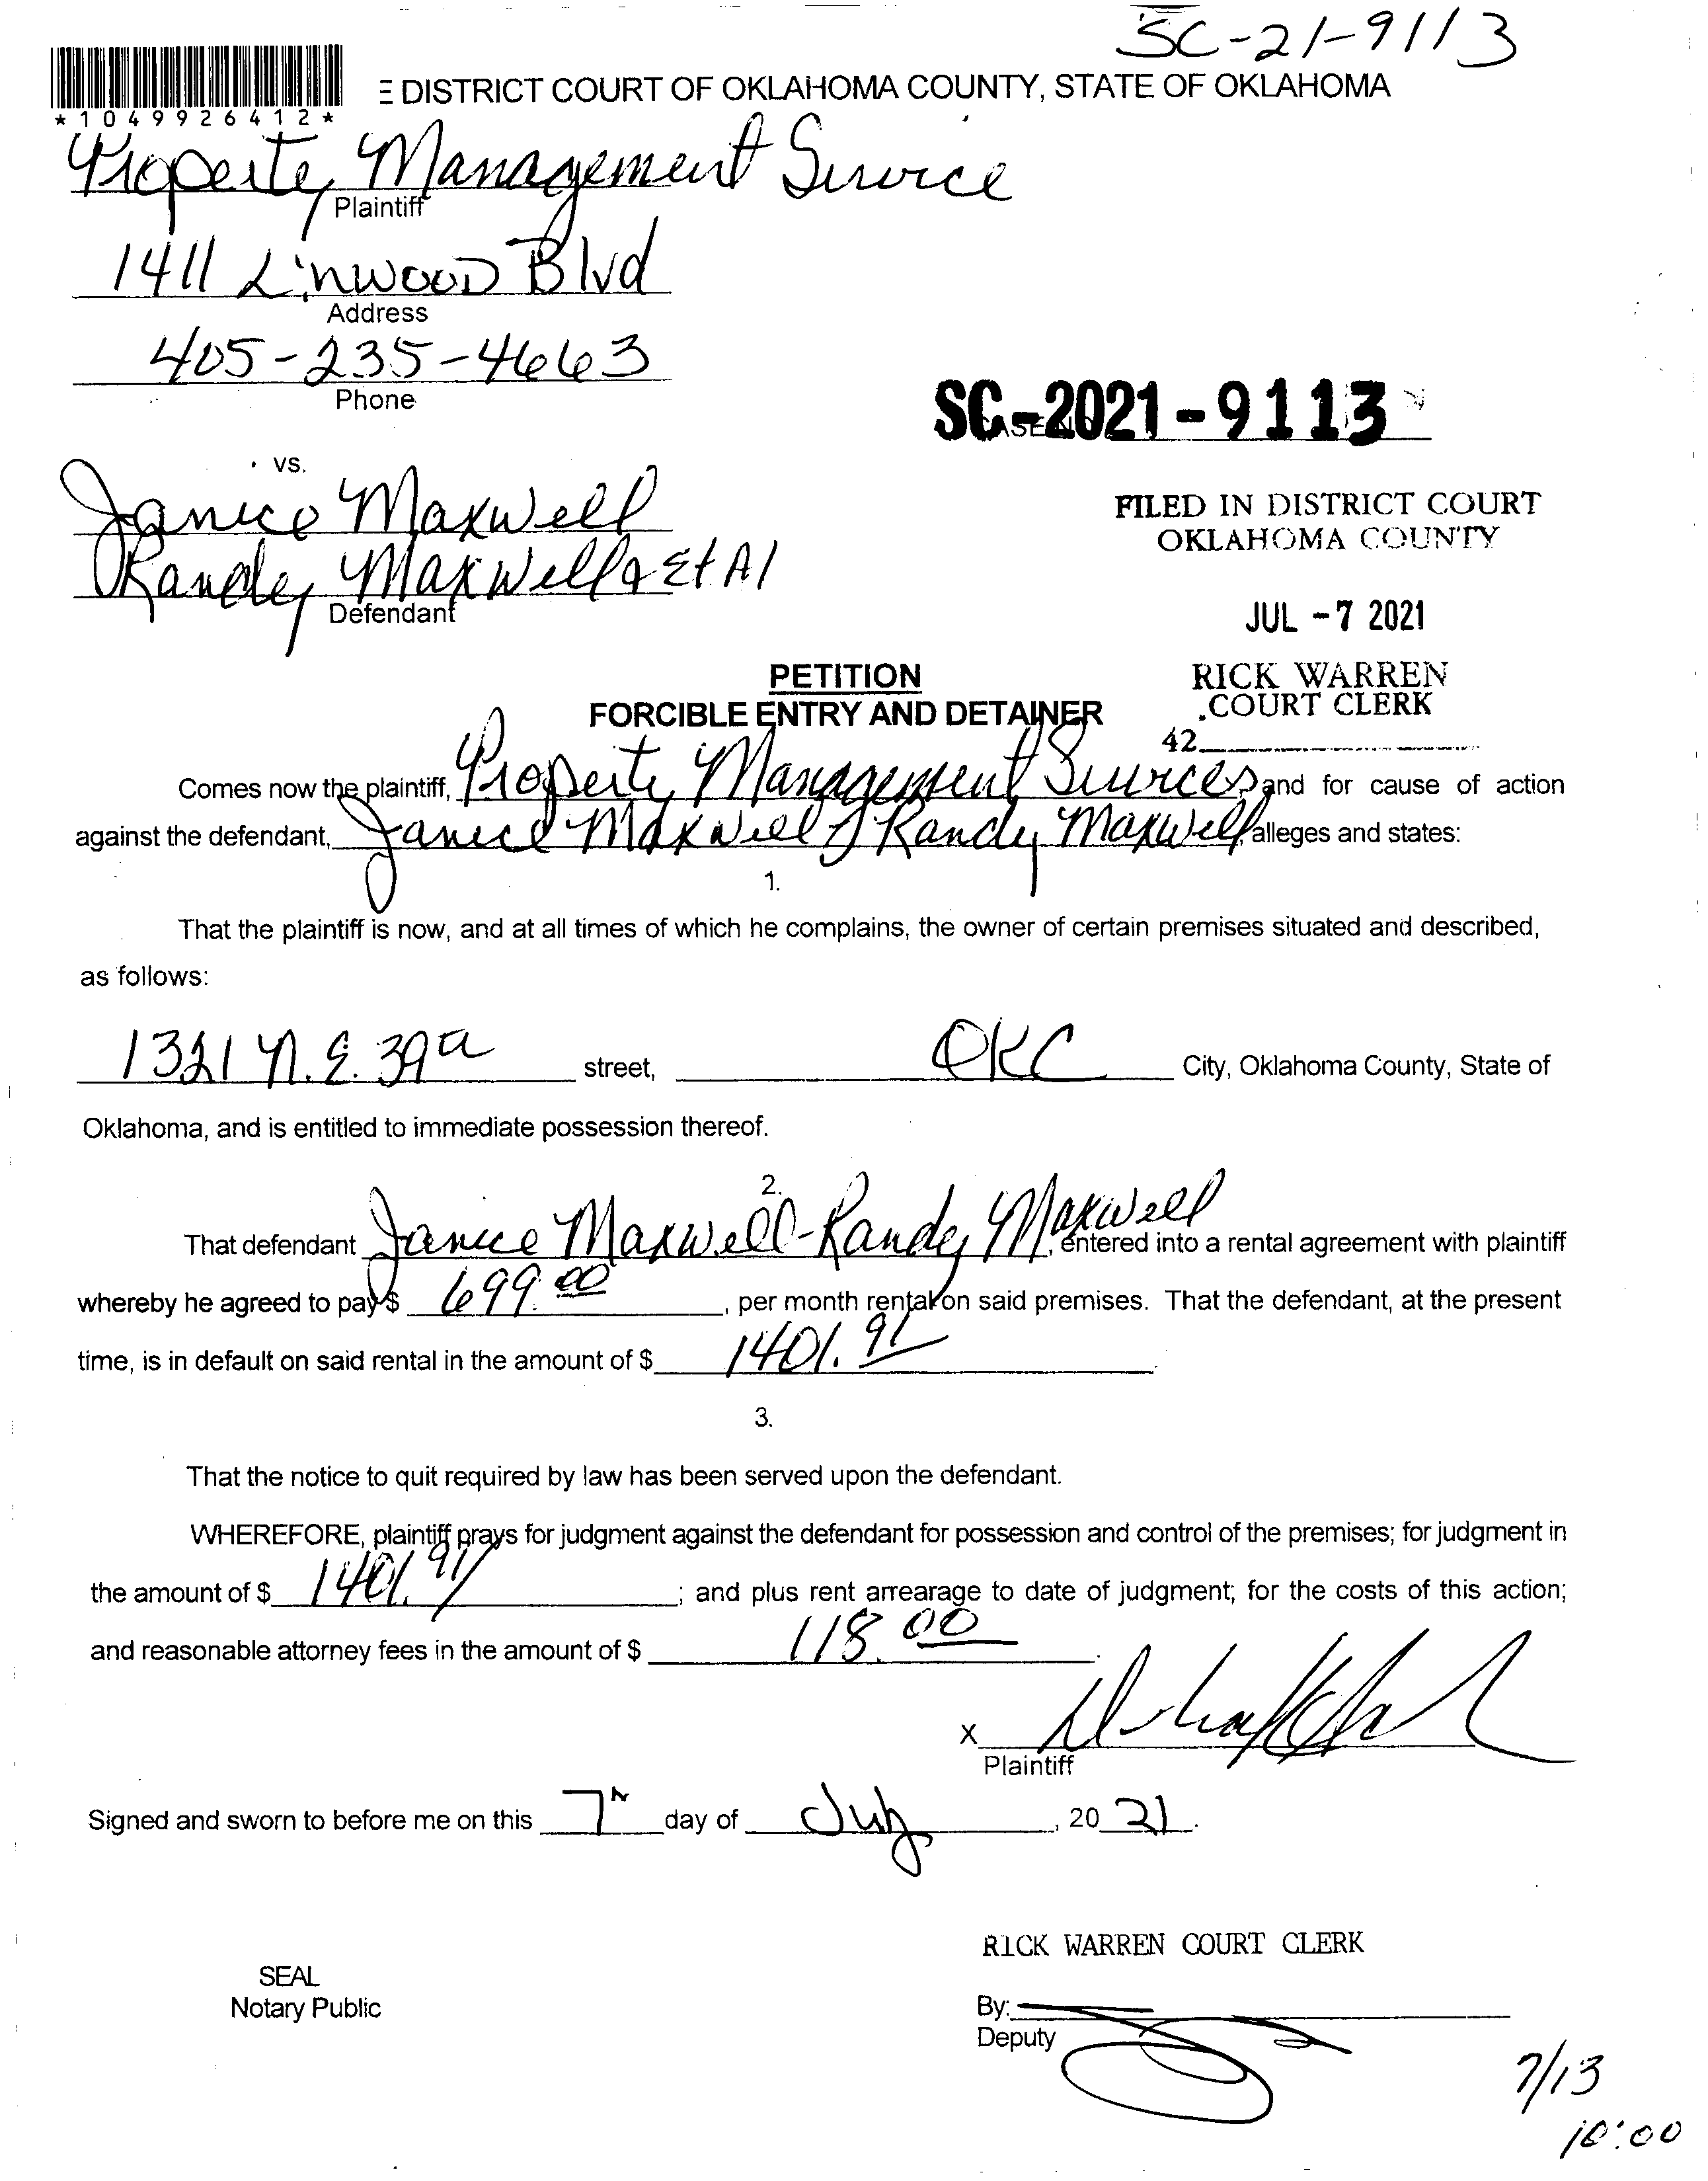 SC-21-9113
E DISTRICT COURT OF OKLAHOMA COUNTY, STATE OF OKLAHOMA
*1049926412*
Property Management Service
Plaintiff
1411 Linwood Blvd
Address
405-235-4663
Phone
SC-2021-9113
vs.
Janice Maxwell
Randy Maxwell & Et Al
Defendant
FILED IN DISTRICT COURT
OKLAHOMA COUNTY
JUL -7 2021
RICK WARREN
COURT CLERK
42
PETITION
FORCIBLE ENTRY AND DETAINER
Comes now the plaintiff, Property Management Services and for cause of action
against the defendant, Janice Maxwell / Randy Maxwell, alleges and states:
1.
That the plaintiff is now, and at all times of which he complains, the owner of certain premises situated and described,
as follows:
1321 N.E. 39 street, OKC City, Oklahoma County, State of
Oklahoma, and is entitled to immediate possession thereof.
2.
That defendant Janice Maxwell - Randy Maxwell, entered into a rental agreement with plaintiff
whereby he agreed to pay $ 699.00, per month rental on said premises. That the defendant, at the present
time, is in default on said rental in the amount of $ 1401.91.
3.
That the notice to quit required by law has been served upon the defendant.
WHEREFORE, plaintiff prays for judgment against the defendant for possession and control of the premises; for judgment in
the amount of $ 1401.91; and plus rent arrearage to date of judgment; for the costs of this action;
and reasonable attorney fees in the amount of $ 118.00.
X
Plaintiff
Signed and sworn to before me on this 7th day of July, 2021.
RICK WARREN COURT CLERK
SEAL
Notary Public
By:
Deputy
7/13
10:00